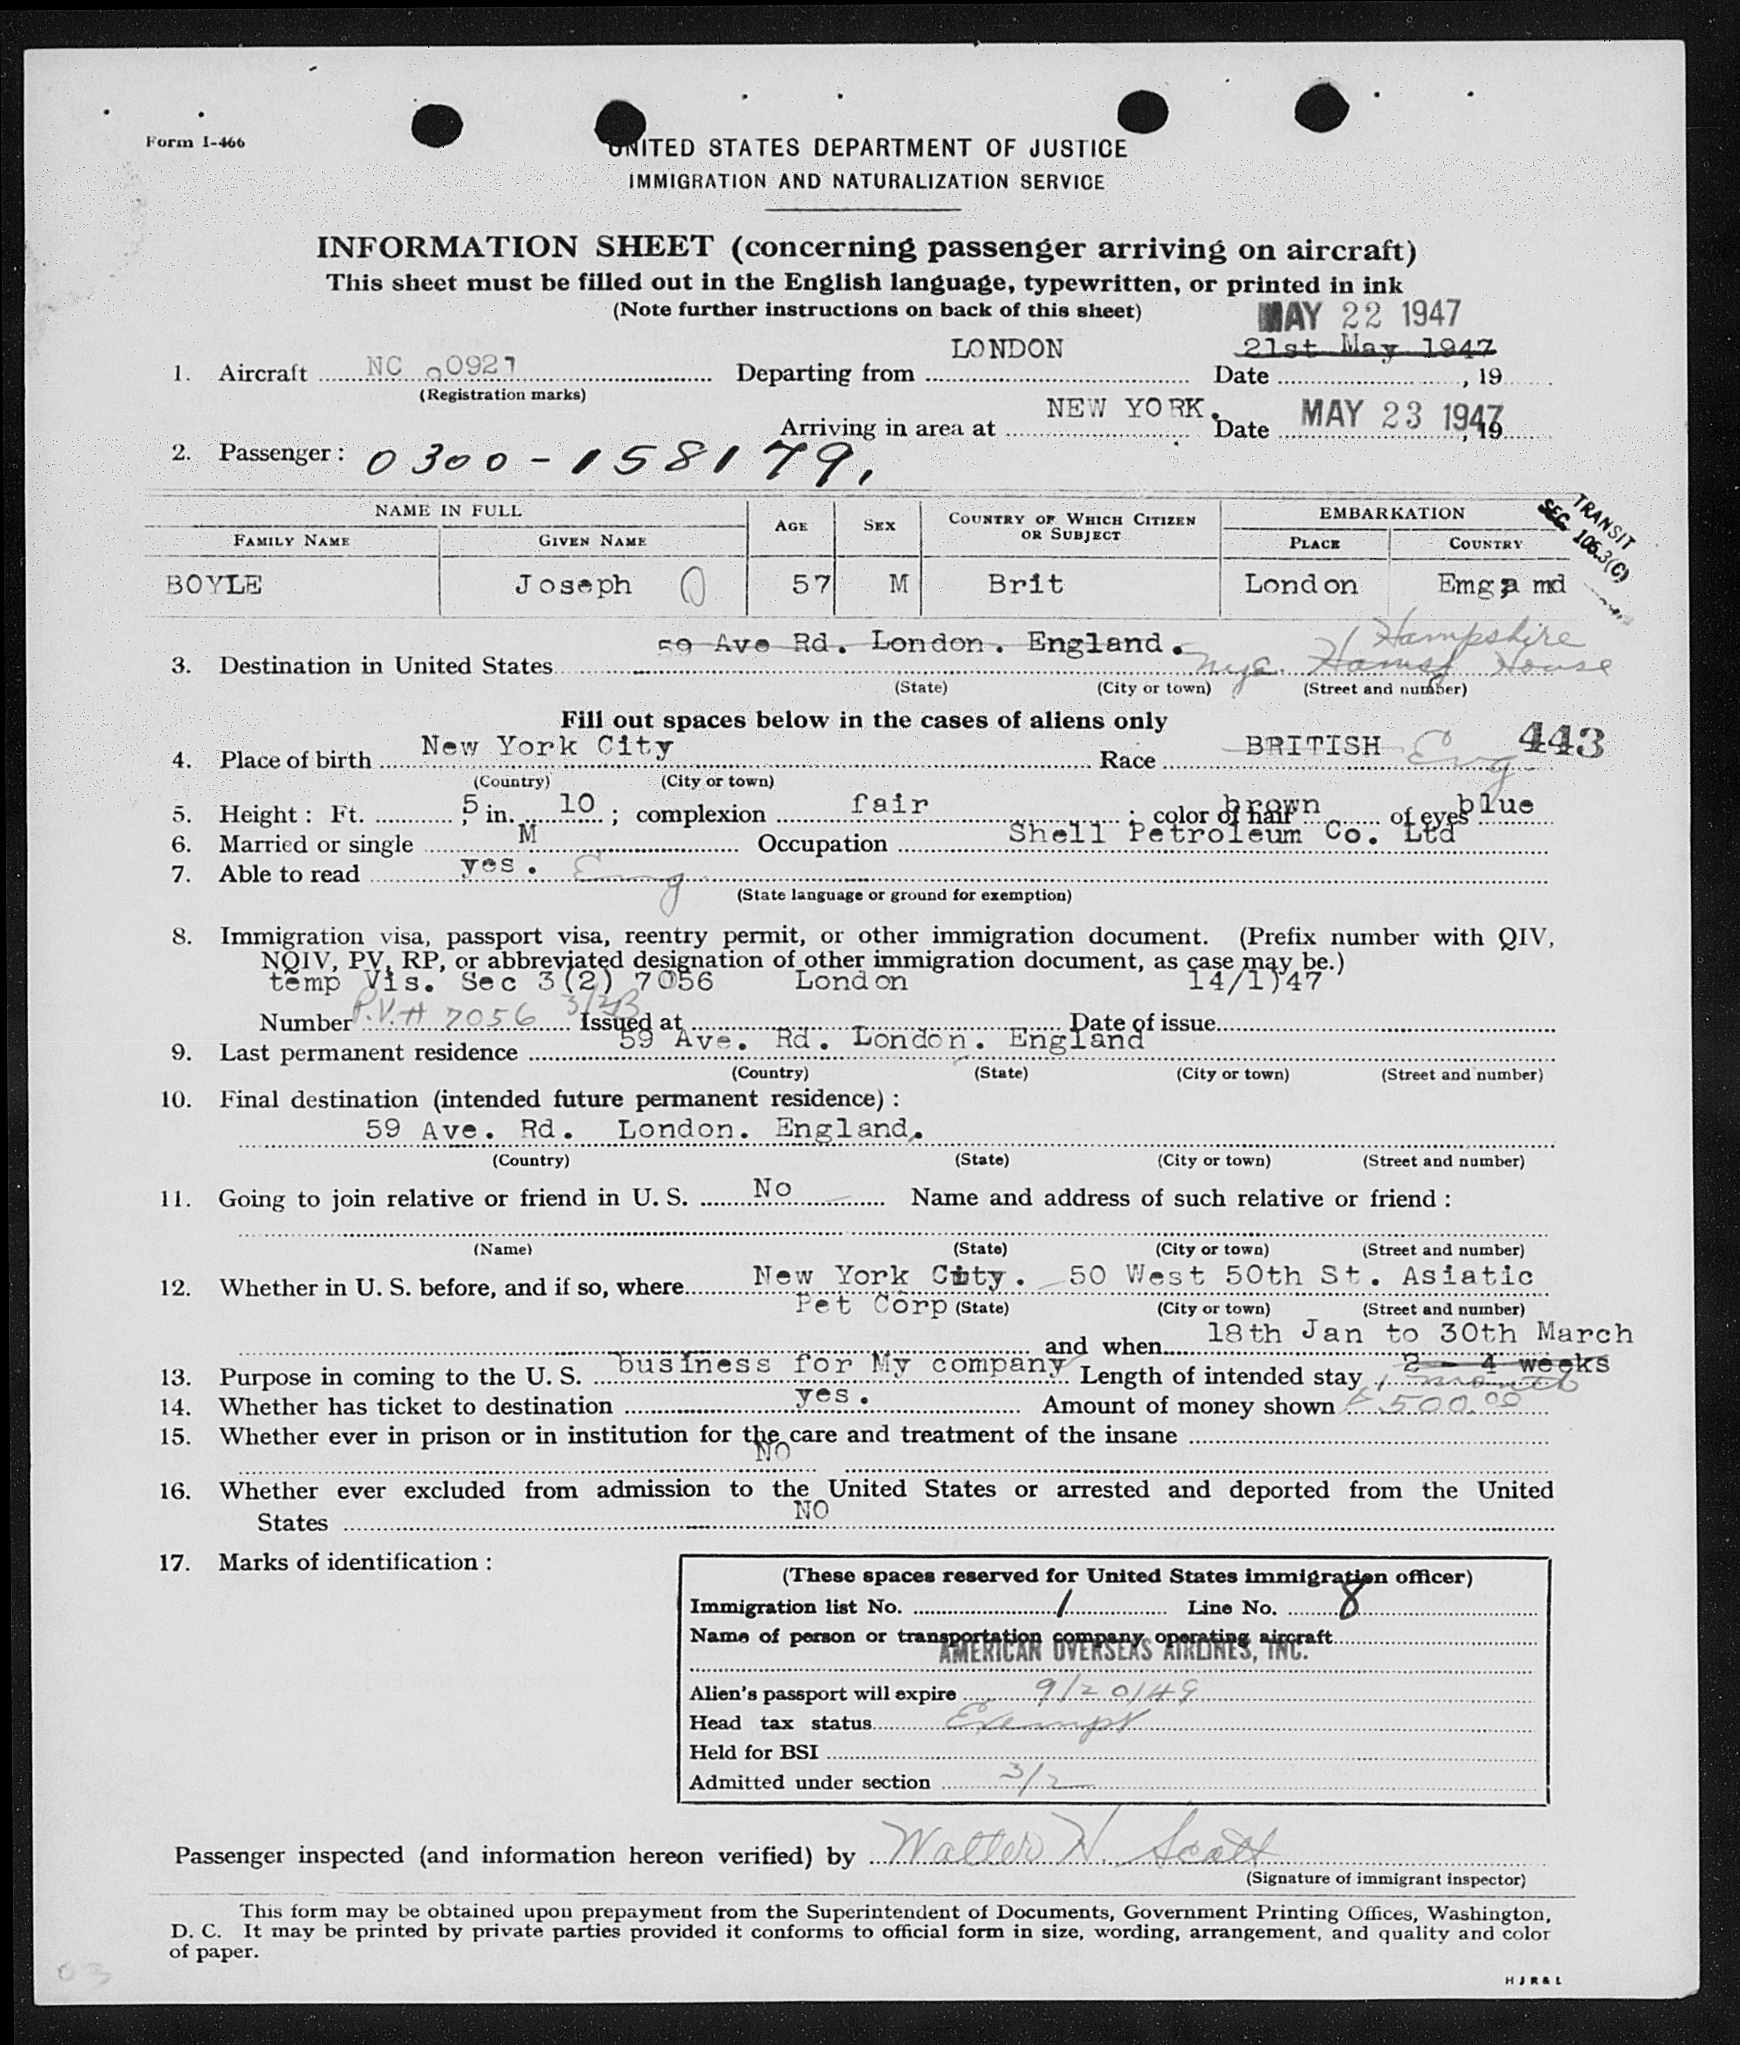 Form I-466
UNITED STATES DEPARTMENT OF JUSTICE
IMMIGRATION AND NATURALIZATION SERVICE
INFORMATION SHEET (concerning passenger arriving on aircraft)
This sheet must be filled out in the English language, typewritten, or printed in ink
(Note further instructions on back of this sheet)
MAY 22 1947
LONDON 21st May 1947
1. Aircraft NC 90921 Departing from Date , 19
(Registration marks)
NEW YORK. MAY 23 1947
Arriving in area at Date , 19
2. Passenger: 0300-158179,
NAME IN FULL AGE SEX COUNTRY OF WHICH CITIZEN OR SUBJECT EMBARKATION
FAMILY NAME GIVEN NAME PLACE COUNTRY
TRANSIT
SEC. 106.3(C)
BOYLE Joseph O 57 M Brit London Emga md
59 Ave Rd. London. England. Hampshire
3. Destination in United States nyc. House
(State) (City or town) (Street and number)
Fill out spaces below in the cases of aliens only
443
4. Place of birth New York City Race BRITISH Eng
(Country) (City or town)
5. Height: Ft. 5 ; in. 10 ; complexion fair ; color of hair brown of eyes blue
6. Married or single M Occupation Shell Petroleum Co. Ltd
7. Able to read yes. Eng
(State language or ground for exemption)
8. Immigration visa, passport visa, reentry permit, or other immigration document. (Prefix number with QIV,
NQIV, PV, RP, or abbreviated designation of other immigration document, as case may be.)
temp Vis. Sec 3(2) 7056 London 14/1)47
Number P.V.# 7056 Issued at Date of issue
9. Last permanent residence 59 Ave. Rd. London. England
(Country) (State) (City or town) (Street and number)
10. Final destination (intended future permanent residence):
59 Ave. Rd. London. England.
(Country) (State) (City or town) (Street and number)
11. Going to join relative or friend in U. S. No Name and address of such relative or friend:
(Name) (State) (City or town) (Street and number)
12. Whether in U. S. before, and if so, where New York City. 50 West 50th St. Asiatic
Pet Corp (State) (City or town) (Street and number)
and when 18th Jan to 30th March
13. Purpose in coming to the U. S. business for My company Length of intended stay 2 - 4 weeks 1 month
14. Whether has ticket to destination yes. Amount of money shown 500.00
15. Whether ever in prison or in institution for the care and treatment of the insane
NO
16. Whether ever excluded from admission to the United States or arrested and deported from the United
States NO
17. Marks of identification:
(These spaces reserved for United States immigration officer)
Immigration list No. 1 Line No. 8
Name of person or transportation company operating aircraft
AMERICAN OVERSEAS AIRLINES, INC.
Alien's passport will expire 9/20/49
Head tax status Exempt
Held for BSI
Admitted under section 3/2
Passenger inspected (and information hereon verified) by Walter H. Scott
(Signature of immigrant inspector)
This form may be obtained upon prepayment from the Superintendent of Documents, Government Printing Offices, Washington,
D. C. It may be printed by private parties provided it conforms to official form in size, wording, arrangement, and quality and color
of paper.
03
H J R & L